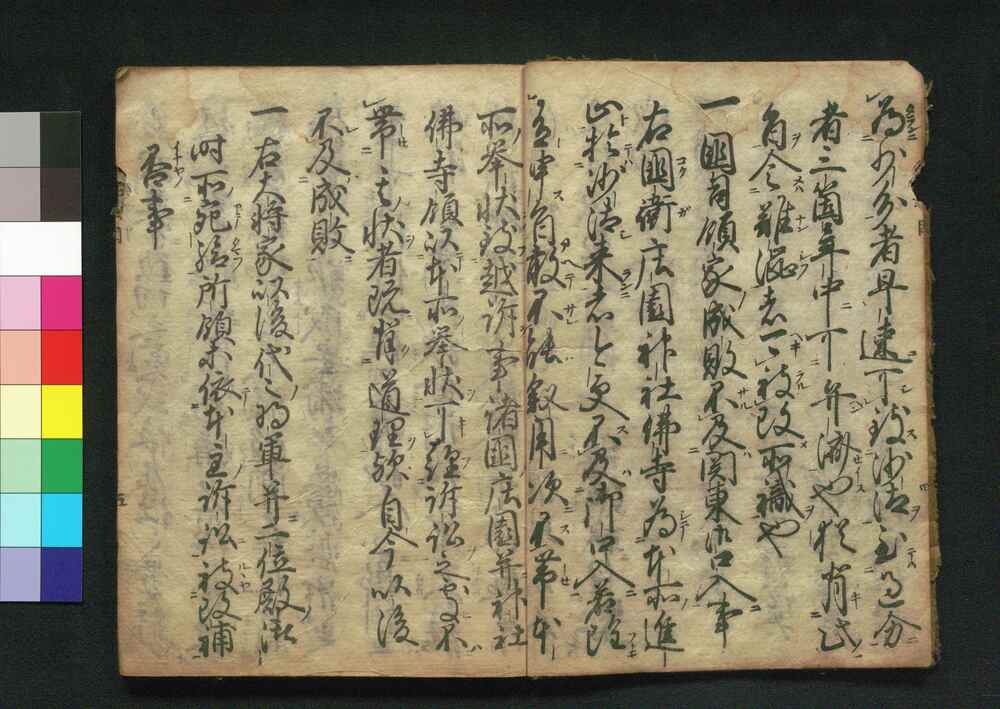 為少分者早速可致沙汰至過分
者三箇年中可弁済也猶背此
旨令難渋者可被改所職也
一 國司領家成敗不及関東御口入事
右國衙庄園神社佛寺為本所進
止於沙汰来者今更不及御口入若雖
有申旨敢不能叙用次不帯本
所挙状致越訴事諸國庄園并神社
佛寺領以本所挙状可経訴訟之処不
帯其状者既背道理歟自今以後
不及成敗
一 右大将家以後代々将軍并二位殿御
時所宛給所領等依本主訴訟被改補
否事